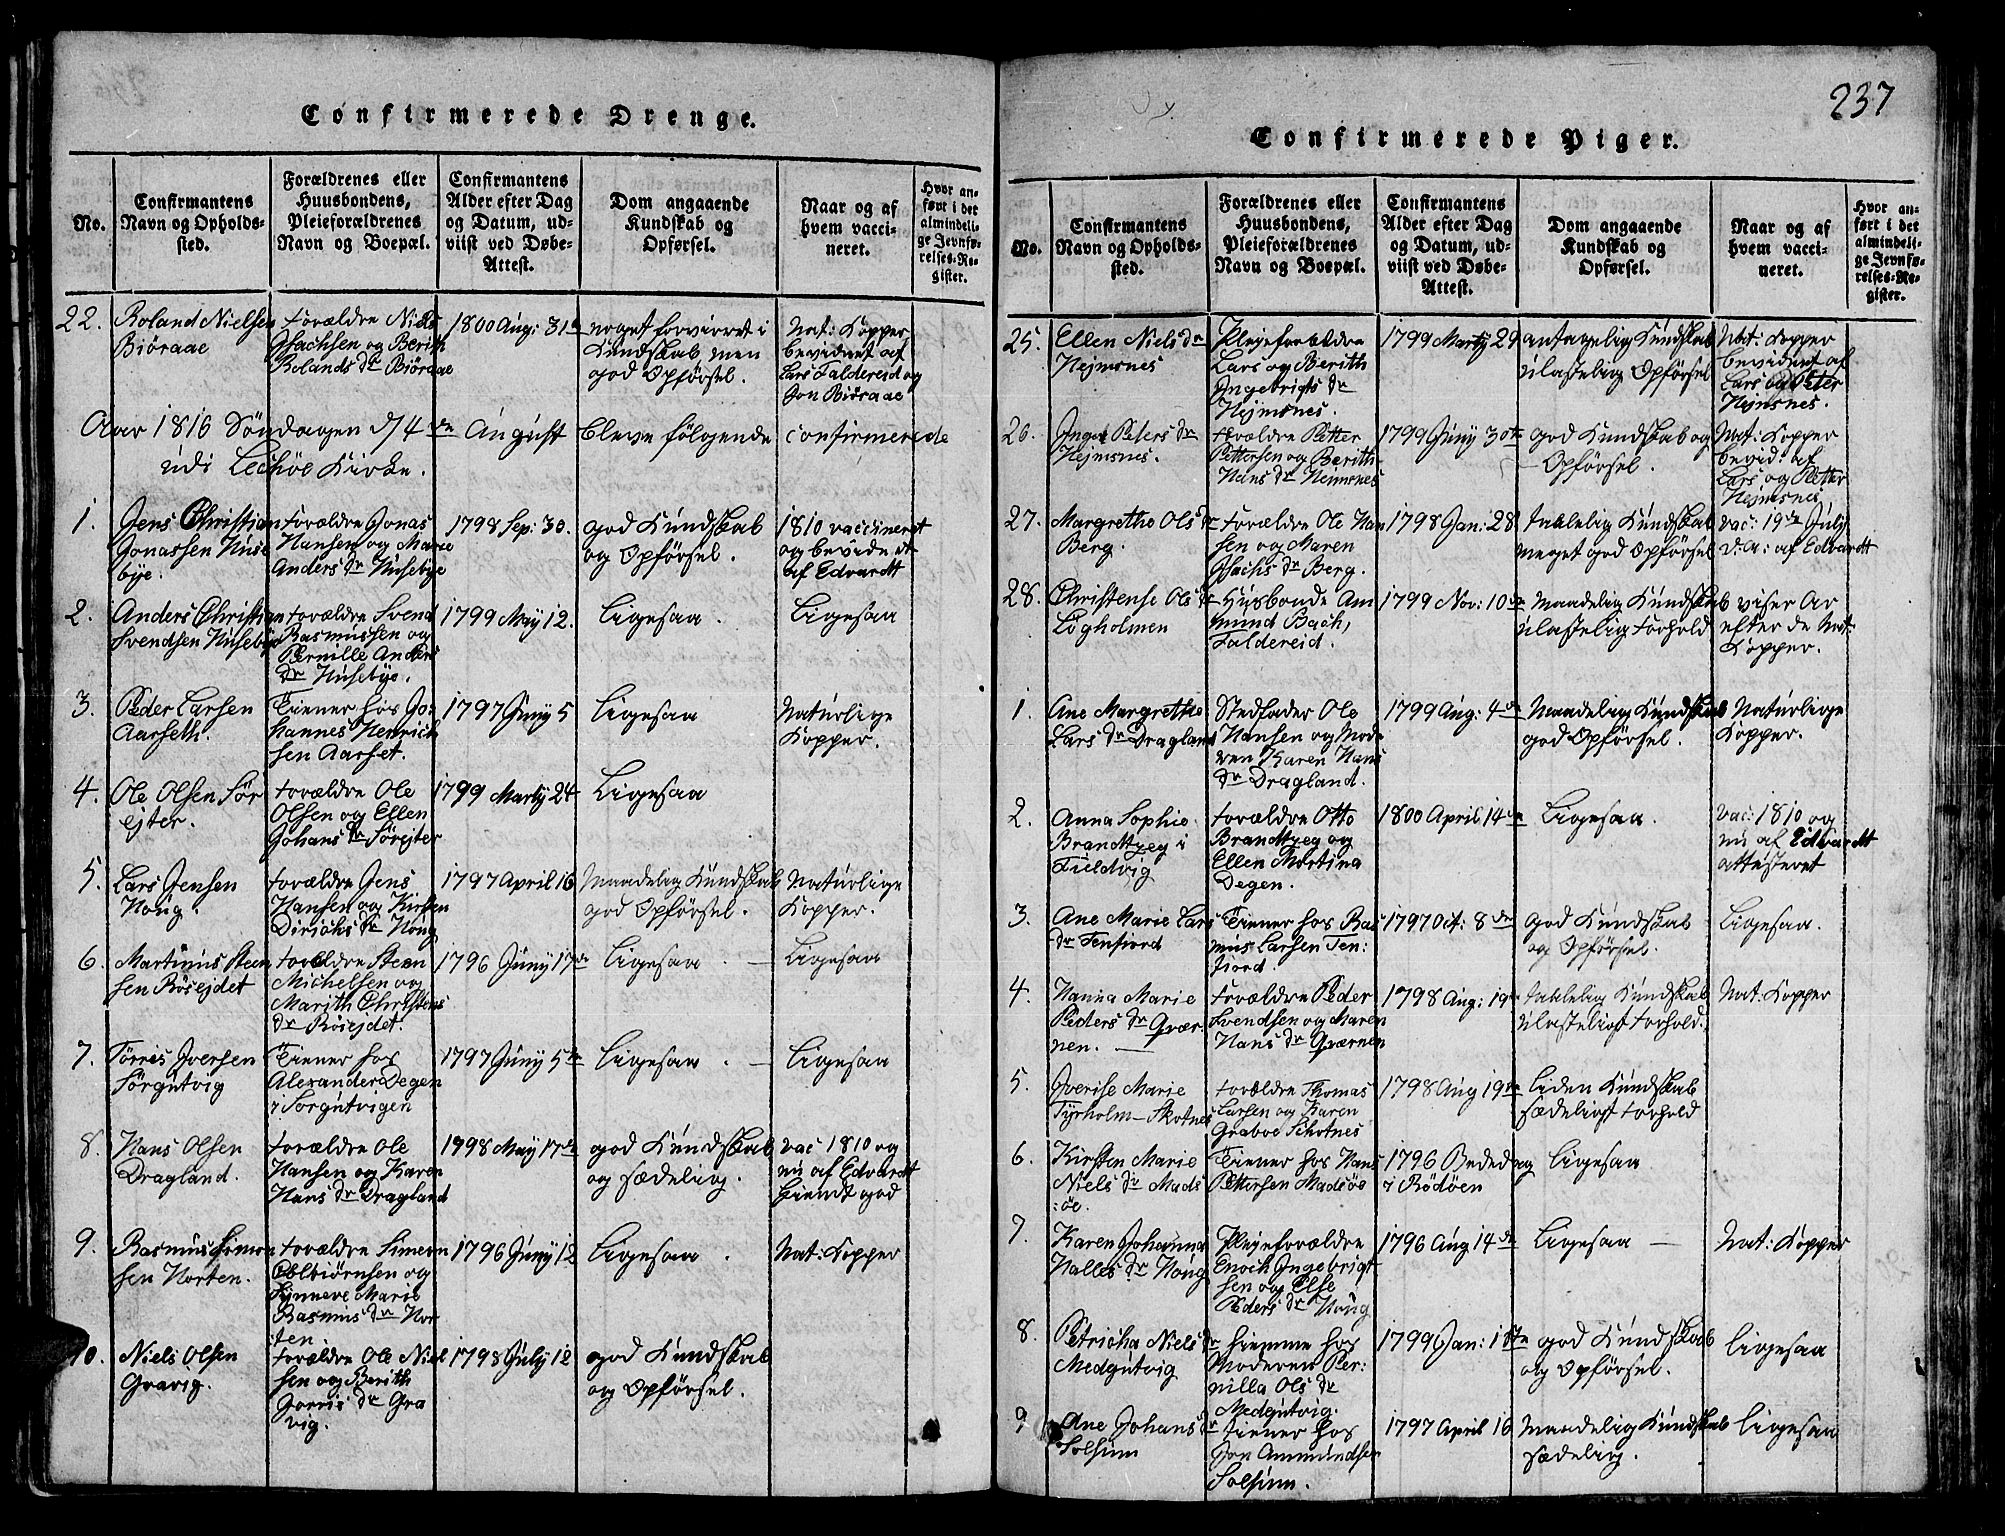 Confirmerede Drenge.
No.
Confirmantens
Navn og Opholds-
sted.
Forældrenes eller
Huusbondens,
Pleieforældrenes
Navn og Boepæl.
Confirmantens
Alder efter Dag
og Datum, ud-
viist ved Døbe-
Attest.
Dom angaaende
Kundskab og
Opførsel.
Naar og af
hvem vacci-
neret.
Hvor an-
ført i det
almindeli-
ge Jevnfø-
relses-Re-
gister.
22.
Roland Nielsen
Biøraae
Forældre Niels
Isachsen og Berith
Rolands dr Biøraae
1800 Aug: 31
noget forvirret i
Kundskab, men
god Opførsel.
Nat: Kopper
bevidnet af
Lars Faldereid og
Jon Biøraae
Aar 1816 Søndagen d 4de August bleve følgende confirmerede
udi Lechöe Kirke.
1.
Jens Christian
Jonassen Huse
bye.
Forældre Jonas
Hansen og Marie
Anders dr Husebye
1798 Sep: 30.
god Kundskab
og Opførsel.
1810 vaccineret
og bevidnet
af Edvardt
2.
Anders Christian
Svendsen Husebye
Forældre Svend
Rasmussen og
Pernille Anders
dr Husebye.
1799 May 12.
Ligesaa.
Ligesaa
3.
Peder Larsen
Aarseth.
Tiener hos Jo-
hannes Henrich
sen Aarset.
1797 Juny 5
Ligesaa
Naturlige
Kopper.
4.
Ole Olsen Sør
ejter.
Forældre Ole
Olsen og Ellen
Johans dr Sørejter
1799 Marty 24
Ligesaa
5.
Lars Jensen
Houg.
Forældre Jens
Hansen og Kirsten
Dirichs dr Houg
1797 April 16
Maadelig Kundskab
god Opførsel.
Naturlige
Kopper.
6.
Martinus Steen
sen Röseidet
Forældre Steen
Michelsen og
Marith Christens
dr Röseidet.
1796 Juny 17de
Ligesaa
Ligesaa
7.
Tørris Iversen
Sørgutvig
Tiener hos
Alexander Degen
i Sørgutvigen
1797 Juny 5te
Ligesaa.
Ligesaa
8.
Hans Olsen
Dragland.
Forældre Ole
Hansen og Karen
Hans dr Dragland
1798 May 17de
god Kundskab
og sædelig.
vac 1810 og
nu af Edvardt
kiendt god
9.
Rasmus Simon
sen Horten.
Forældre Simeon
Esbiørnsen og
Synneve Marie
Rasmus dr Hor
ten
1796 Juny 12
Ligesaa.
Nat: Kopper
10.
Niels Olsen
Gravig.
Forældre Ole Niel
sen og Berith
Jorris dr Gra
vig.
1798 July 12
god Kundskab
og Opførsel.
237
Confirmerede Piger.
No.
Confirmantens
Navn og Opholds-
sted.
Forældrenes eller
Huusbondens,
Pleieforældrenes
Navn og Boepæl.
Confirmantens
Alder efter Dag
og Datum, ud-
viist ved Døbe-
Attest.
Dom angaaende
Kundskab og
Opførsel.
Naar og af
hvem vacci-
neret.
Hvor an-
ført i det
almindeli-
ge Jevnfø-
relses-Re-
gister.
25.
Ellen Niels dr
Hejmsnes
Plejeforældre
Lars og Berith
Ingebrigts dr
Hejmsnes.
1799 Marty 29
antagelig Kundskab
ulastelig Opførsel
Nat: Kopper
bevidnet af
Lars og Peter
Hejmsnes.
26.
Inger Peters dr
Hejmsnes.
Forældre Petter
Pettersen og Berith
Hans dr Hejmsnes
1799 Juny 30te
god Kundskab og
Opførsel.
Nat: Kopper
bevid: af
Lars og Petter
Hejmsnes
27.
Margrethe Ols dr
Berg.
Forældre Ole Han
sen og Maren
Isachs dr Berg.
1798 Jan: 28
taalelig Kundskab
meget god Opførsel
vac: 19de July
d: A: af Edvardt
28.
Christense Ols dr
Løgholmen
Husbonde Am
mund Bach,
Faldereid.
1799 Nov: 10de
Maadelig Kundskab
ulastelig Forhold
viser Ar
efter de Nat:
Kopper.
1.
Ane Margrethe
Lars dr Dragland
Stedfader Ole
Hansen og Mode
ren Karen Hans
dr Dragland.
1799 Aug: 4de
Maadelig Kundskab
god Opførsel.
Naturlige
Kopper.
2.
Anna Sophie
Brandtzeg i
Fieldvig
Forældre Otto
Brandtzeg og
Ellen Martina
Degen.
1800 April 14de
Ligesaa.
vac: 1810 og
nu af Edvardt
attesteret
3.
Ane Marie Lars
dr Tenfiord
Tiener hos Ras
mus Larsen Ten:
fiord.
1797 Oct: 8de
god Kundskab
og Opførsel.
Ligesaa.
4.
Hanna Marie
Peders dr Qvær-
nen.
Forældre Peder
Svendsen og Maren
Hans dr Qværnen
1798 Aug: 19de
taalelig Kundskab
ulasteligt Forhold.
Nat: Kopper
5.
Iverise Marie
Tyrholm Skotnes
Forældre Thomas
Larsen og Karen
Graboe Skotnes
1798 Aug 19de
Liden Kundskab
sædeligt Forhold
6.
Kirsten Marie
Niels dr Mads
:öe.
Tiener hos Hans
Pettersen Madsöe
1796 Bededag
i Rödöen
Ligesaa
7.
Karen Johanna
Halles dr Houg
Plejeforældre
Enoch Ingebrigt
sen og Else
Peders dr Houg
1796 Aug 14de
Ligesaa
Nat: Kopper
8.
Petricha Niels dr
Medgutvig
hiemme hos
Moderen Per:
nilla Ols dr
Medgutvig.
1799 Jan: 1ste
god Kundskab
og Opførsel.
Ligesaa
9
Ane Johans dr
Solsem
tiener hos
Jon Ammundsen
Solsem.
1797 April 16
Maadelig Kundskab
sædelig.
Ligesaa